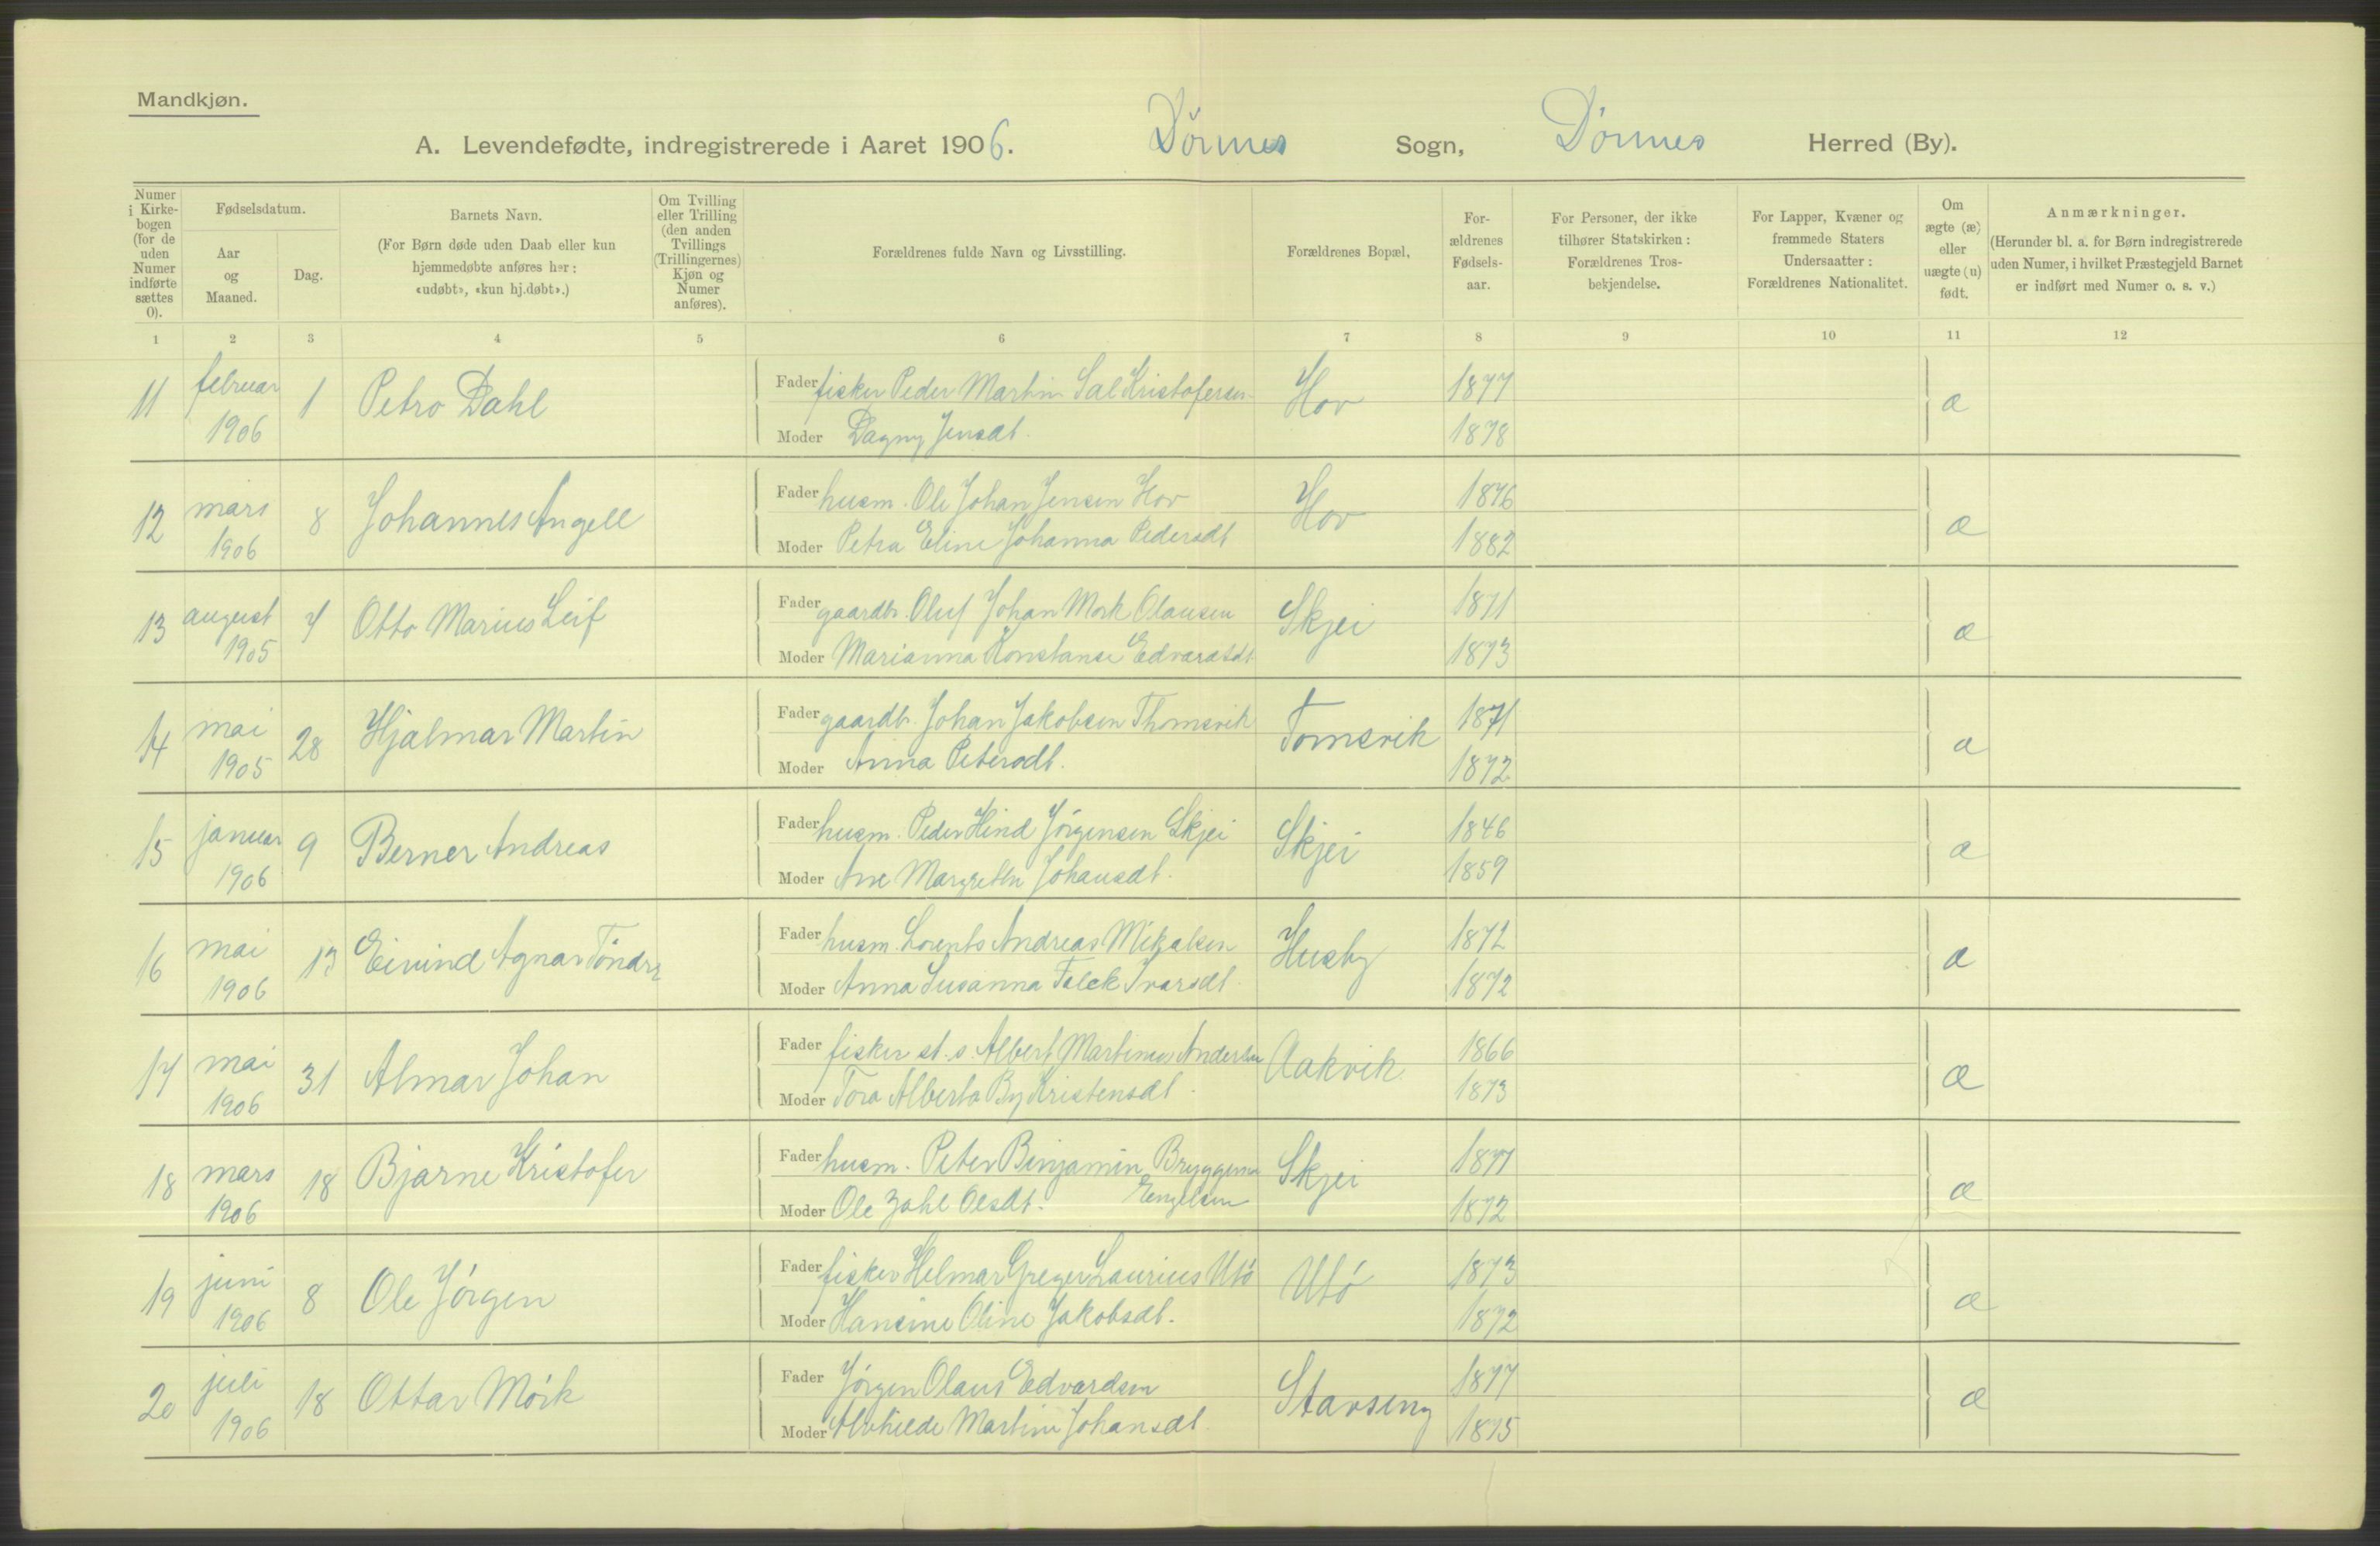 Mandkjøn.
A. Levendefødte, indregistrerede i Aaret 1906. Dönnes Sogn, Dönnes Herred (By).
Numer i Kirkebogen (for de uden Numer indførte sættes 0).
Fødselsdatum.
Aar og Maaned.
Dag.
Barnets Navn.
(For Børn døde uden Daab eller kun hjemmedøbte anføres her: «udøbt», «kun hj.døbt».)
Om Tvilling eller Trilling (den anden Tvillings (Trillingernes) Kjøn og Numer anføres).
Forældrenes fulde Navn og Livsstilling.
Forældrenes Bopæl,
Forældrenes Fødselsaar.
For Personer, der ikke tilhører Statskirken: Forældrenes Trosbekjendelse.
For Lapper, Kvæner og fremmede Staters Undersaatter: Forældrenes Nationalitet.
Om ægte (æ) eller uægte (u) født.
Anmærkninger.
(Herunder bl. a. for Børn indregistrerede uden Numer, i hvilket Præstegjeld Barnet er indført med Numer o. s. v.)
1 2 3 4 5 6 7 8 9 10 11 12
11 februar 1906 1 Petro Dahl
Fader fisker Peder Martin Sal Kristofersen Hov 1877 æ
Moder Dagny Jensdt. 1878
12 mars 1906 8 Johannes Angell
Fader husm. Ole Johan Jensen Hov Hov 1876 æ
Moder Petra Eline Johanna Pedersdt 1882
13 august 1905 7 Otto Marius Leif
Fader gaardbr. Oluf Johan Mork Olausen Skjei 1871 æ
Moder Marianna Konstanse Edvardsdt 1873
14 mai 1905 28 Hjalmar Martin
Fader gaardb. Johan Jakobsen Thomsvik Tomsvik 1871 æ
Moder Anna Petersdt. 1872
15 januar 1906 9 Berner Andreas
Fader husm. Peder Hind Jörgensen Skjei Skjei 1846 æ
Moder Ane Margrethe Johansdt. 1859
16 mai 1906 13 Eivind Agnar Töndre
Fader husm. Lorents Andreas Mikalsen Husby 1872 æ
Moder Anna Susanna Falck Ivarsdt 1872
17 mai 1906 31 Almar Johan
Fader fisker st. s. Albert Martinus Andersen Aakvik 1866 æ
Moder Tora Alberta By Kristensdt. 1873
18 mars 1906 18 Bjarne Kristofer
Fader husm. Peter Benjamin Bryggerma Skjei 1877 æ
Engelsen
Moder Ole Zahl Olsdt. 1872
19 juni 1906 8 Ole Jörgen
Fader fisker Helmar Greger Laurius Utö Utö 1873 æ
Moder Hansine Oline Jakobsdt. 1872
20 juli 1906 18 Ottar Mörk
Fader Jörgen Olaus Edvardsen Stavseng 1877 æ
Moder Alvhilde Martine Johansdt. 1875